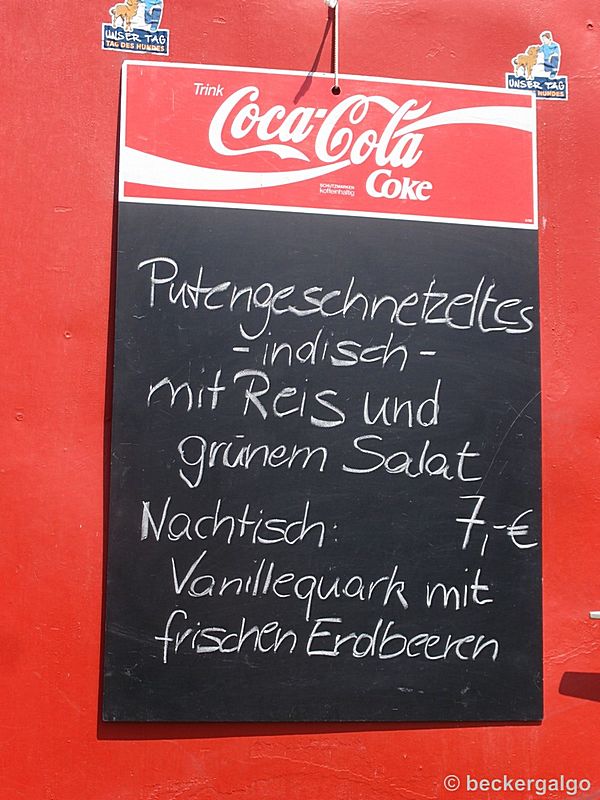 UNSER TAG
TAG DES HUNDES
UNSER TAG
HUNDES
Trink
Coca-Cola
SCHUTZMARKEN
koffeinhaltig
Coke
Putengeschnetzeltes
- indisch -
mit Reis und
grünem Salat
Nachtisch: 7,-€
Vanillequark mit
frischen Erdbeeren
© beckergalgo